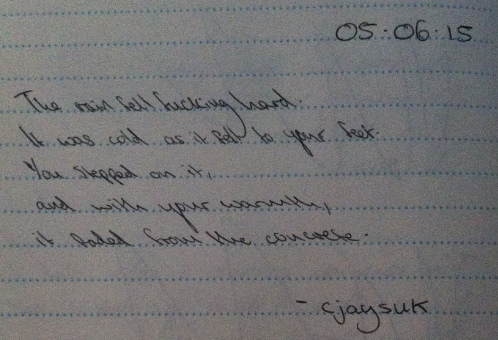 05.06.15
The rain fell fucking hard.
It was cold as it fell to your feet.
You stepped on it,
and with your warmth,
it faded from the concrete.
- cjaysuk